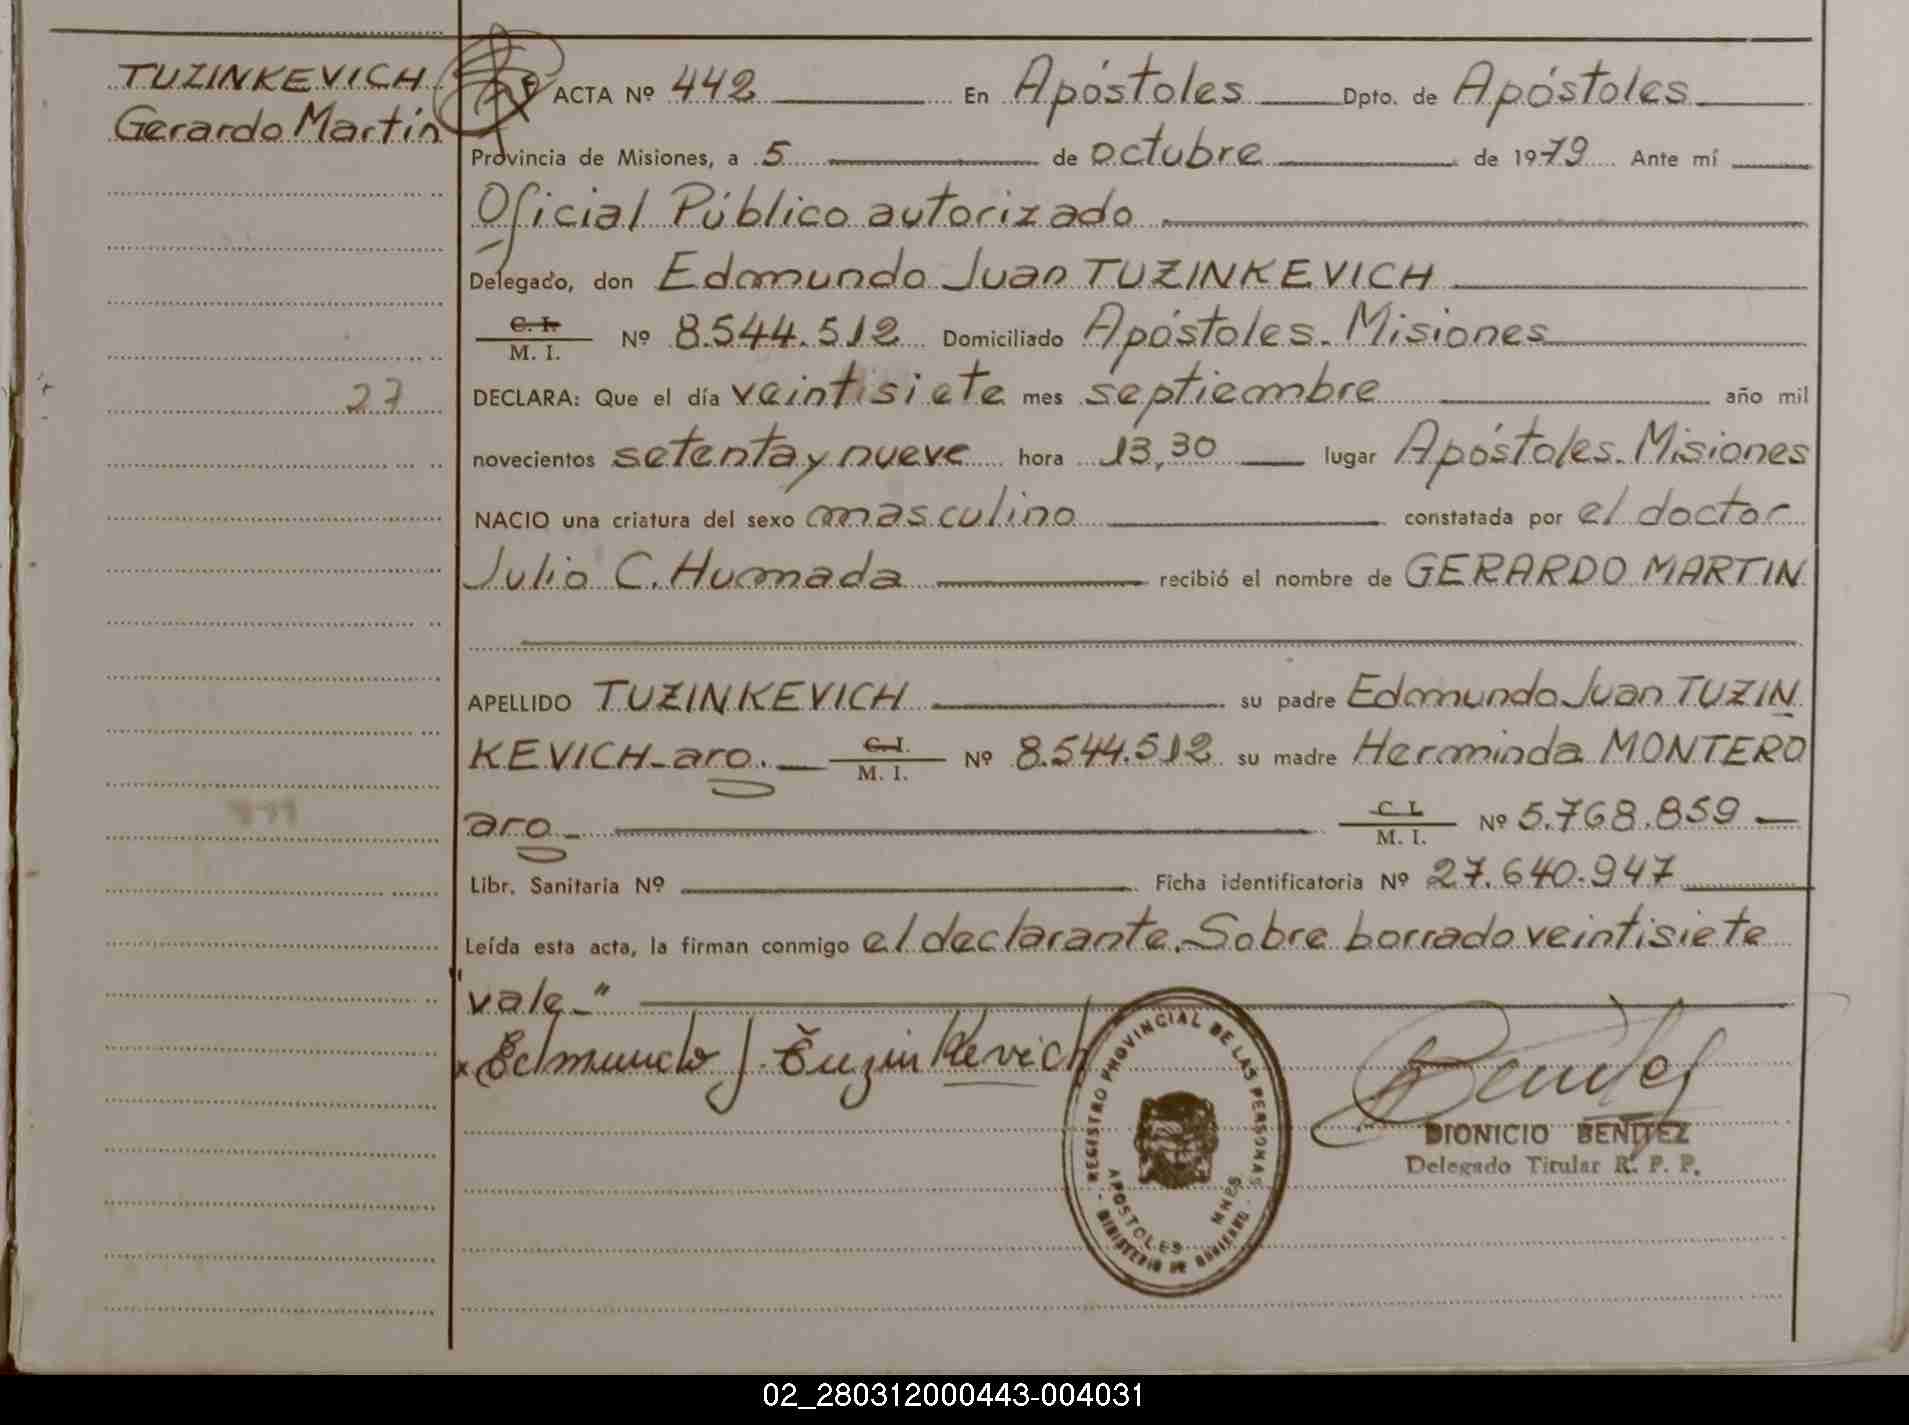 TUZINKEVICH
Gerardo Martín
27
ACTA Nº 442 En Apóstoles Dpto. de Apóstoles
Provincia de Misiones, a 5 de octubre de 1979 Ante mí
Oficial Público autorizado
Delegado, don Edmundo Juan TUZINKEVICH
C. I. / M. I. Nº 8.544.512 Domiciliado Apóstoles. Misiones
DECLARA: Que el día veintisiete mes septiembre año mil
novecientos setenta y nueve hora 13,30 lugar Apóstoles. Misiones
NACIO una criatura del sexo masculino constatada por el doctor
Julio C. Humada recibió el nombre de GERARDO MARTIN
APELLIDO TUZINKEVICH su padre Edmundo Juan TUZIN
KEVICH-aro. C. I. / M. I. Nº 8.544.512 su madre Herminda MONTERO
aro- C. I. / M. I. Nº 5.768.859
Libr. Sanitaria Nº Ficha identificatoria Nº 27.640.947
Leída esta acta, la firman conmigo el declarante. Sobre borrado veintisiete
"vale-"
x Edmundo J. Tuzinkevich
REGISTRO PROVINCIAL DE LAS PERSONAS
APOSTOLES MNES
MINISTERIO DE GOBIERNO
Benitez
DIONICIO BENITEZ
Delegado Titular R. P. P.
02_280312000443-004031